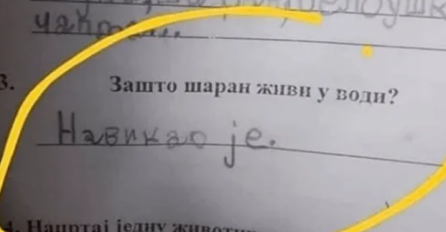 чапљ
3. Зашто шаран живи у води?
Навикао је.
4. Нацртај једну живот